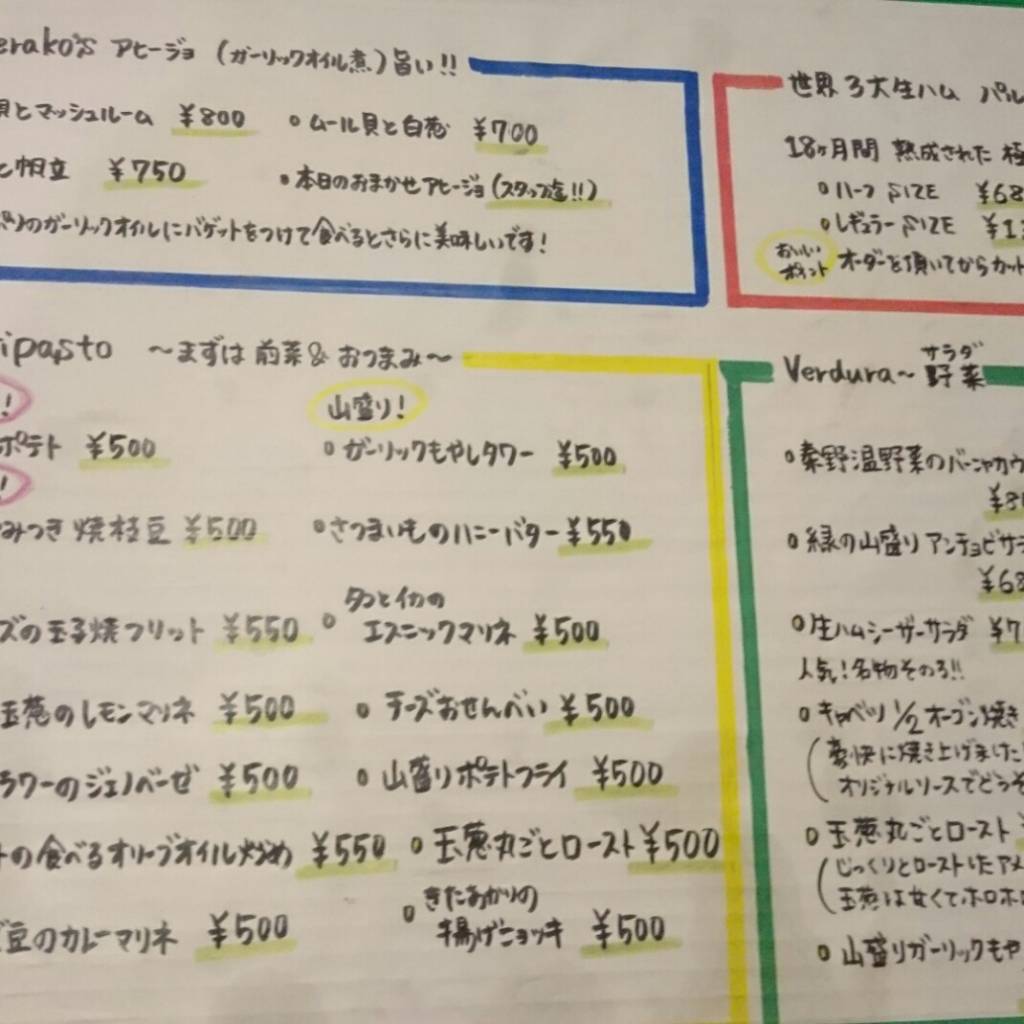 erako's アヒージョ (ガーリックオイル煮) 旨い!!
貝とマッシュルーム ¥800
ムール貝と白葱 ¥700
と帆立 ¥750
本日のおまかせアヒージョ (スタッフ迄!!)
のガーリックオイルにバゲットをつけて食べるとさらに美味しいです!
世界3大生ハム パル
18ヶ月間 熟成された 極
ハーフ SIZE ¥68
レギュラー SIZE ¥1
おいしい
ポイント
オーダーを頂いてからカット
ipasto ～まずは前菜&おつまみ～
!
ポテト ¥500
!
みつき 焼枝豆 ¥500
ズの玉子焼フリット ¥550
玉葱のレモンマリネ ¥500
ラワーのジェノベーゼ ¥500
トの食べるオリーブオイル炒め ¥550
豆のカレーマリネ ¥500
山盛り!
ガーリックもやしタワー ¥500
さつまいものハニーバター ¥550
タコとイカの
エスニックマリネ ¥500
チーズおせんべい ¥500
山盛りポテトフライ ¥500
玉葱丸ごとロースト ¥500
きたあかりの
揚げニョッキ ¥500
サラダ
Verdura～野菜
秦野温野菜のバーニャカウ
緑の山盛り アンチョビサラ
¥68
生ハムシーザーサラダ ¥7
人気!名物そのろ!!
キャベツ 1/2 オーブン焼き
(豪快に焼き上げました
オリジナルソースでどうぞ
玉葱丸ごとロースト
(じっくりとローストしたアメ
玉葱は甘くてホロホロ
山盛りガーリックもや